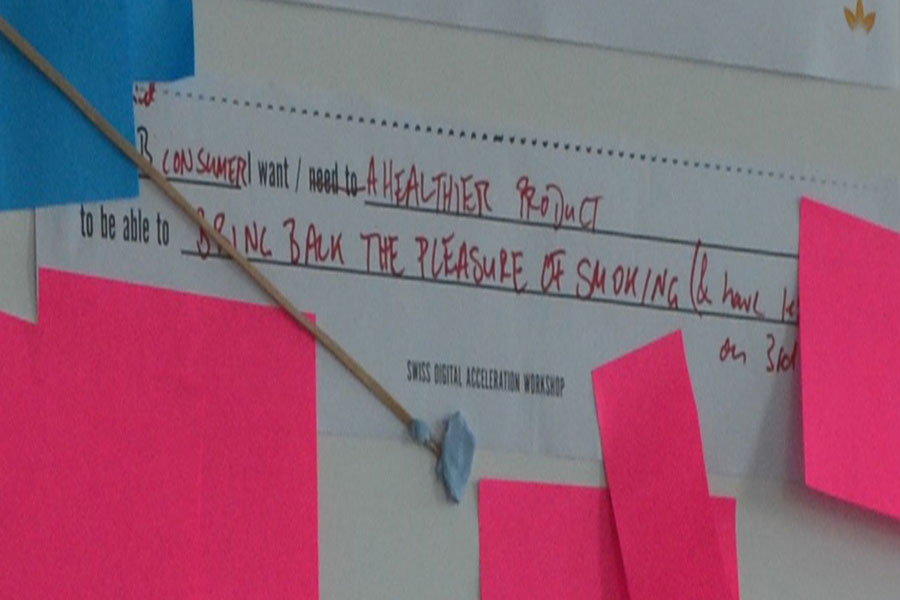 B CONSUMER I want / need to A HEALTHIER PRODUCT
to be able to BRING BACK THE PLEASURE OF SMOKING (& have
on 3rd
SWISS DIGITAL ACCELERATION WORKSHOP